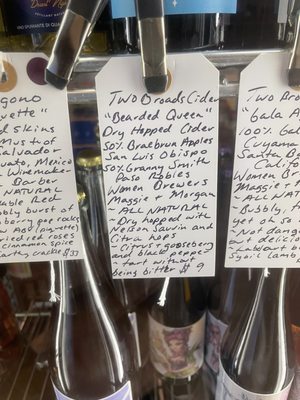 Dual Night
ogono
vette"
d skins
Must of
Salvador
vato, Mexico
Winemaker
Barber
NATURAL
burst o
berry pee
dried roses
cinnamon spice
earthy crackle $33
Two Broads Cider
"Bearded Queen"
Dry Hopped Cider
50% Braeburn Apples
San Luis Obispo
50% Granny Smith
Paso Robles
Women Brewers
Maggie + Morgan
~ ALL NATURAL
~ Dry hopped with
Nelson Sauvin and
Citra hops
~ Citrus + gooseberry
and black pepper
~ tart without
being bitter $ 9
Two Bro
"Gala A
100% Ga
Cuyama
Santa B
Women B
Maggie +
~ ALL NA
~ Bubbly,
yet ok so
~ Not dang
but delicio